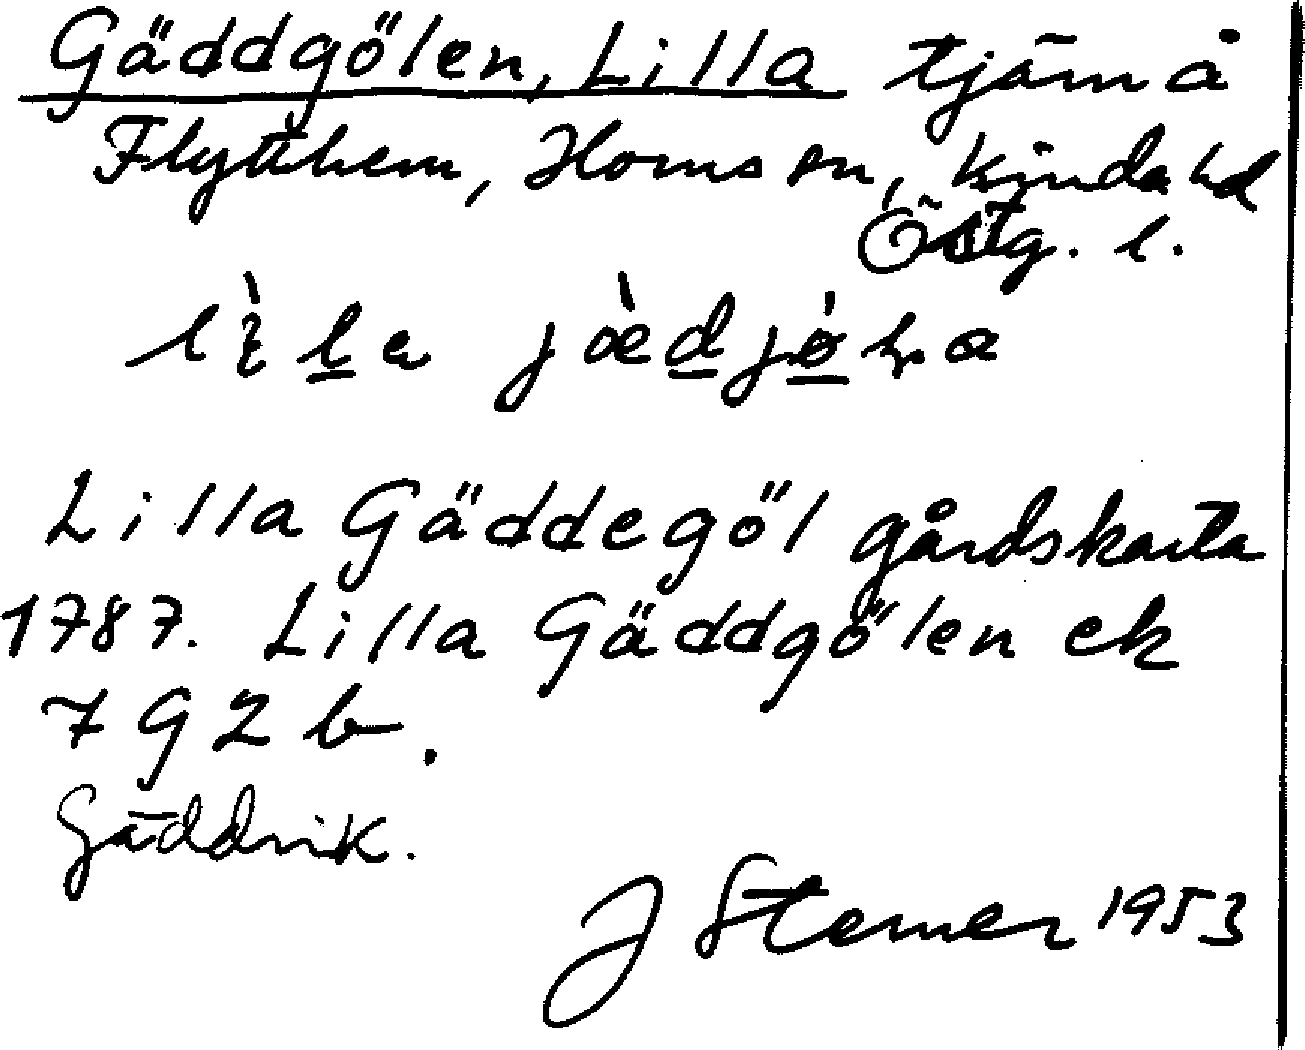 Gäddgölen, Lilla tjärn å
Flytthem, Horns sn, Kinda hd
Östg. l.
Lilla Gäddegöl gårdskarta
1787. Lilla Gäddgölen ek
7 9 2 b.
Gäddrik.
J Sterner 1953